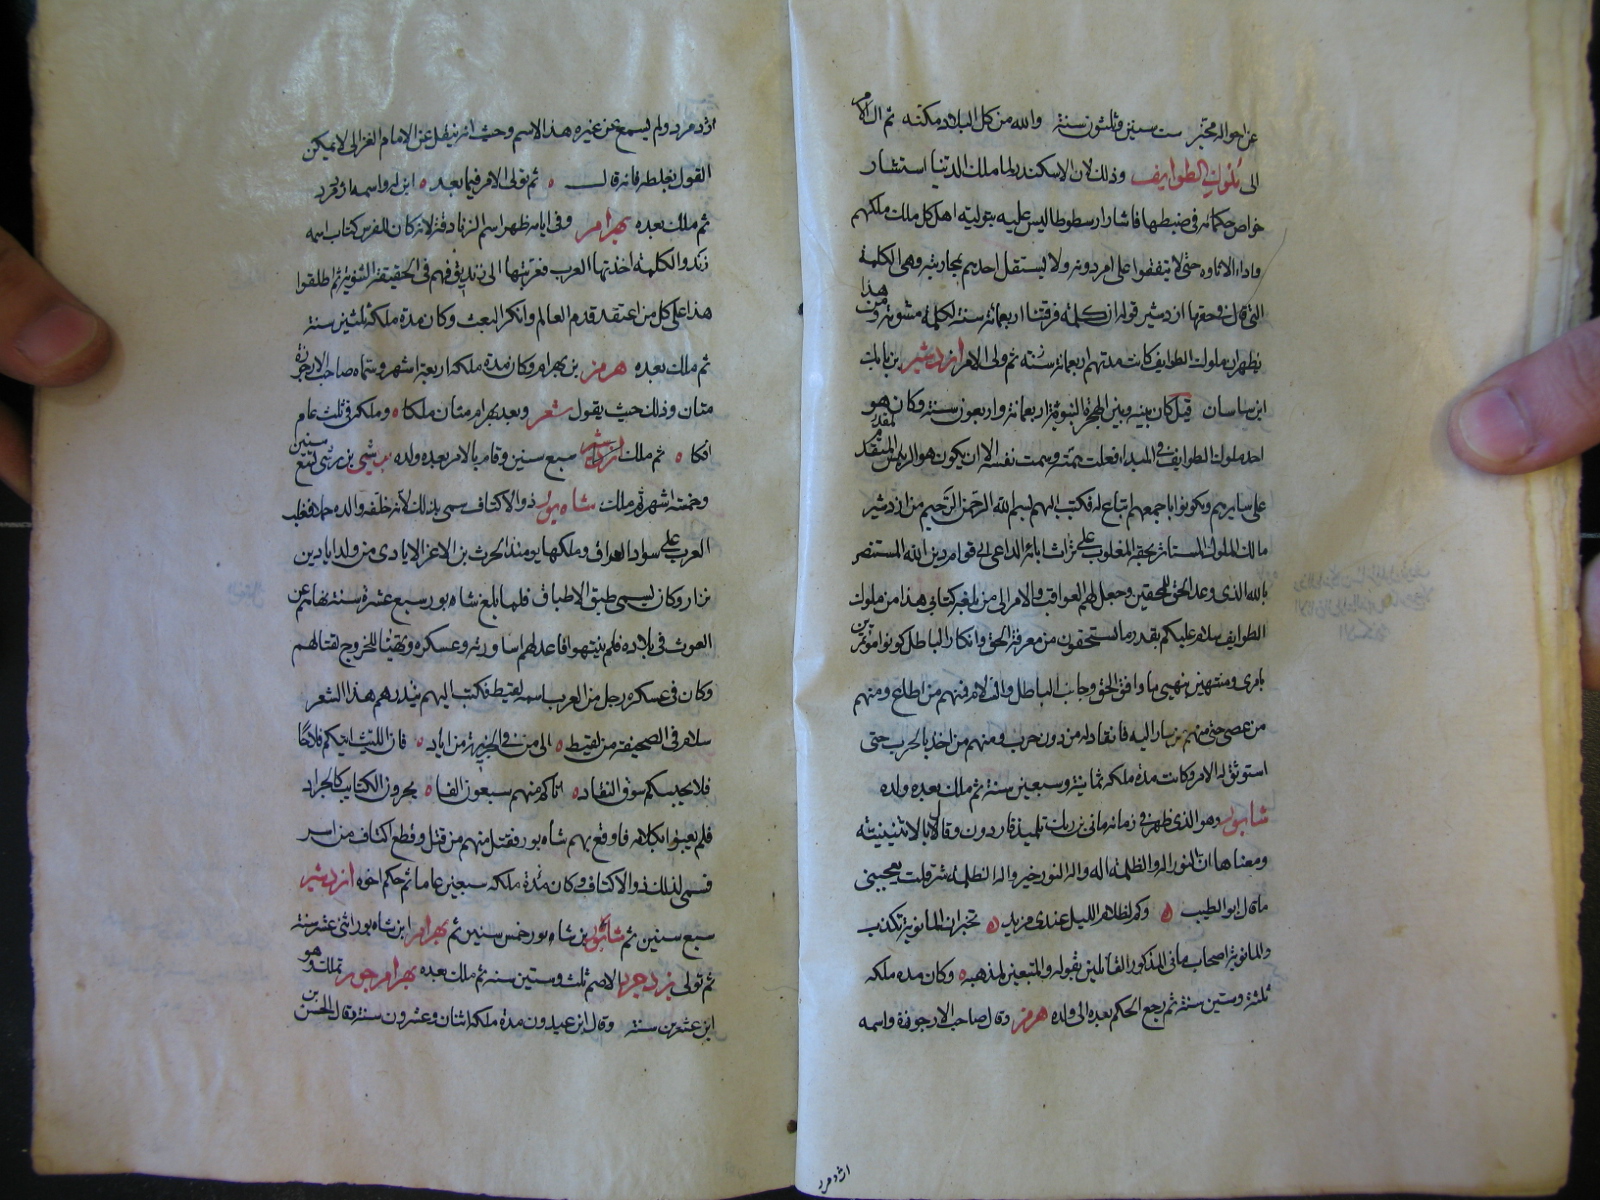 عن احواله مخبر ست سنين وثلثون سنة والله من كل البلاد مكنه ثم ال الامر
الى ملوك الطوايف وذلك لان الاسكندر لما ملك الدنيا استشار
خواص حكمائه في ضبطها فاشار ارسطوطاليس عليه بتولية اهل كل ملك ملكهم
واداء الاتاوه حتى لا يتفقوا على امر دونه ولا يستقل احدهم بمحاربته وهى الكلمة
التى قال في حقها ازدشير قوله ان كلمة فرقتنا اربعمائة سنة لكلمة مشومة ومن هذا
يظهر ان ملوك الطوايف كانت مدتهم اربعمائة سنة ثم ولى الامر ازدشير بن بابك
ابن ساسان قيل كان بينه وبين الهجرة النبوية اربعمائة واربعون سنة وكان هو
احد ملوك الطوايف في المبداء فعلت همته وسمت نفسه الا ان يكون هو الرئيس المتقدم
على سايرهم ويكونوا باجمعهم اتباع له فكتب اليهم بسم الله الرحمن الرحيم من ازدشير
مالك الملوك المستاثر بحقه المغلوب على تراث ابائه الداعى الى قوام دين الله المستنصر
بالله الذى وعد الحق للمحقين وجعل لهم العواقب والامر الى من بلغه كتابى هذا من ملوك
الطوايف سلام عليكم بقدر ما تستحقون من معرفة الحق وانكار الباطل كونوا موتمرين
بامرى ومنتهين بنهيى ما وافق الحق وجانب الباطل والا فلا فمنهم من اطاع ومنهم
من عصى حتى منهم من سار اليه فانقاد له من دون حرب ومنهم من اخذ بالحرب حتى
استوثق له الامر وكانت مدة ملكه ثمانية وسبعين سنة ثم ملك بعده ولده
شابور وهو الذى ظهر في زمانه مانى تلميذ قاردون وقال بالاثنينيته
ومعناها ان النور اله والظلمة اله واله النور خير واله الظلمة شر قلت يعجبنى
ما قال ابو الطيب وكم لظلام الليل عندى من يد تخبر ان المانوية تكذب
والمانوية اصحاب مانى المذكور القائلين بقوله والمتبعين لمذهبه وكان مدة ملكه
ثلثة وستين سنة ثم رجع الحكم بعده الى ولده هرمز وقال صاحب الارجوزة واسمه
ازدمرد
ازدمرد ولم يسمع عن غيره هذا الاسم وحيث انه ينقل عن الامام الغزالى لا يمكن
القول بغلطه فانه قال ثم تولى الامر فيما بعد ابن له واسمه ازدمرد
ثم ملك بعده بهرام وفى ايامه ظهر اسم الزنادقة لانه كان للفرس كتاب اسمه
زند والكلمة اخذتها العرب فعربتها الى زنديق فهم فى الحقيقة الثنوية ثم اطلقوا
هذا على كل من اعتقد قدم العالم وانكر البعث وكان مدة ملكه ثلثين سنة
ثم ملك بعده هرمز بن بهرام وكان مدة ملكه اربعة اشهر وسماه صاحب الارجوزة
مثان وذلك حيث يقول شعر وبعد بهرام مثان ملكا وملكه في ثلث عام
افكا ثم ملك ازدشير سبع سنين وقام بالامر بعده ولده نرسى تسع سنين
وخمسة اشهر ثم ملك شاه پور ذو الاكتاف سمى بذلك لانه خلفه والده حملا فغلب
العرب على سواد العراق وملكها يومئذ الحرث بن الاغر الايادى من ولد اياد بن
نزار وكان يسمى طبق الاطباق فلما بلغ شاه پور سبع عشرة سنة نهاهم عن
العوث في بلاده فلم ينتهوا فاعد لهم اساورته وعسكره وتهيئا للخروج لقتالهم
وكان في عسكره رجل من العرب اسمه لقيط فكتب اليهم ينذرهم هذا الشعر
سلام في الصحيفة من لقيط الى من في الجزيرة من اياد فان الليث اتيكم
فلا يحبسكم سوق النقاد اتاكم منهم سبعون الفا يجرون الكتايب كالجراد
فلم يعبؤا بكلامه فاوقع بهم شاه پور فقتل منهم من قتل وقطع اكتاف من اسر
فسمى لذلك ذو الاكتاف وكان مدة ملكه سبعين عاما ثم حكم اخوه ازدشير
سبع سنين ثم شابور بن شاه پور خمس سنين ثم بهرام ابن شاه پور اثنى عشر سنة
ثم تولى يزدجرد الاصم ثلث وستين سنة ثم ملك بعده بهرام جور تملك وهو
ابن عشرين سنة وقال ابن عيدون مدة ملكه اثنان وعشرون سنة وقال الحسن بن